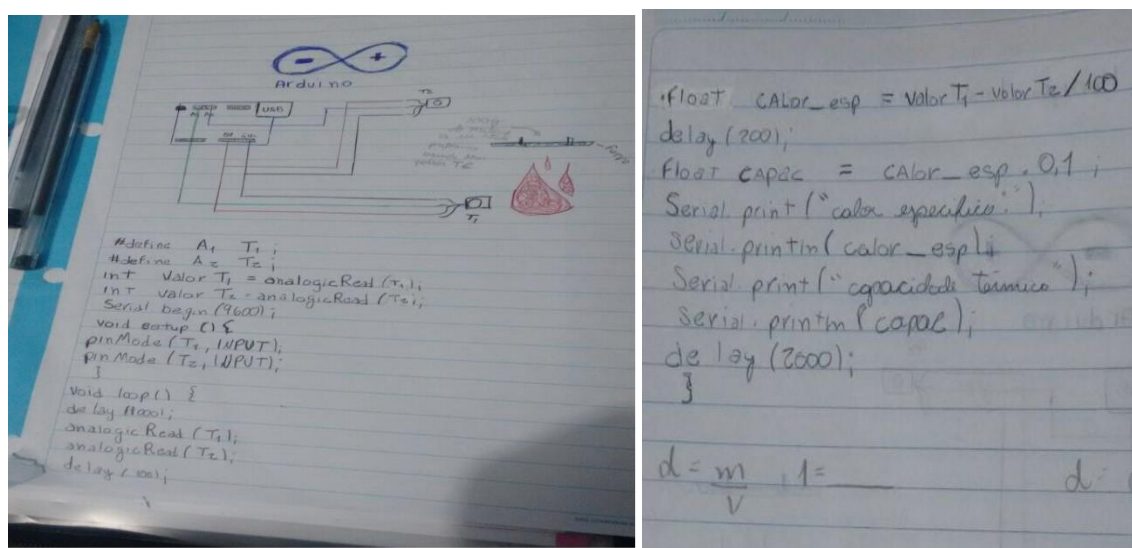 - +
Arduino
USB
T2
T1
#define A1 T1;
#define A2 T2;
int valor T1 = analogicRead (T1);
int valor T2 = analogicRead (T2);
Serial begin (9600);
void setup () {
pinMode (T1, INPUT);
pinMode (T2, INPUT);
}
void loop () {
delay (1000);
analogicRead (T1);
analogicRead (T2);
delay (100);
float CALor_esp = valor T1 - valor T2 / 100
delay (200);
float CAPac = CALor_esp . 0,1 ;
Serial. print ("calor especifico:");
Serial. println( calor_esp);
Serial. print ("capacidade térmica");
Serial. println (capac);
delay (2600);
}
d = m/V 1=
d =